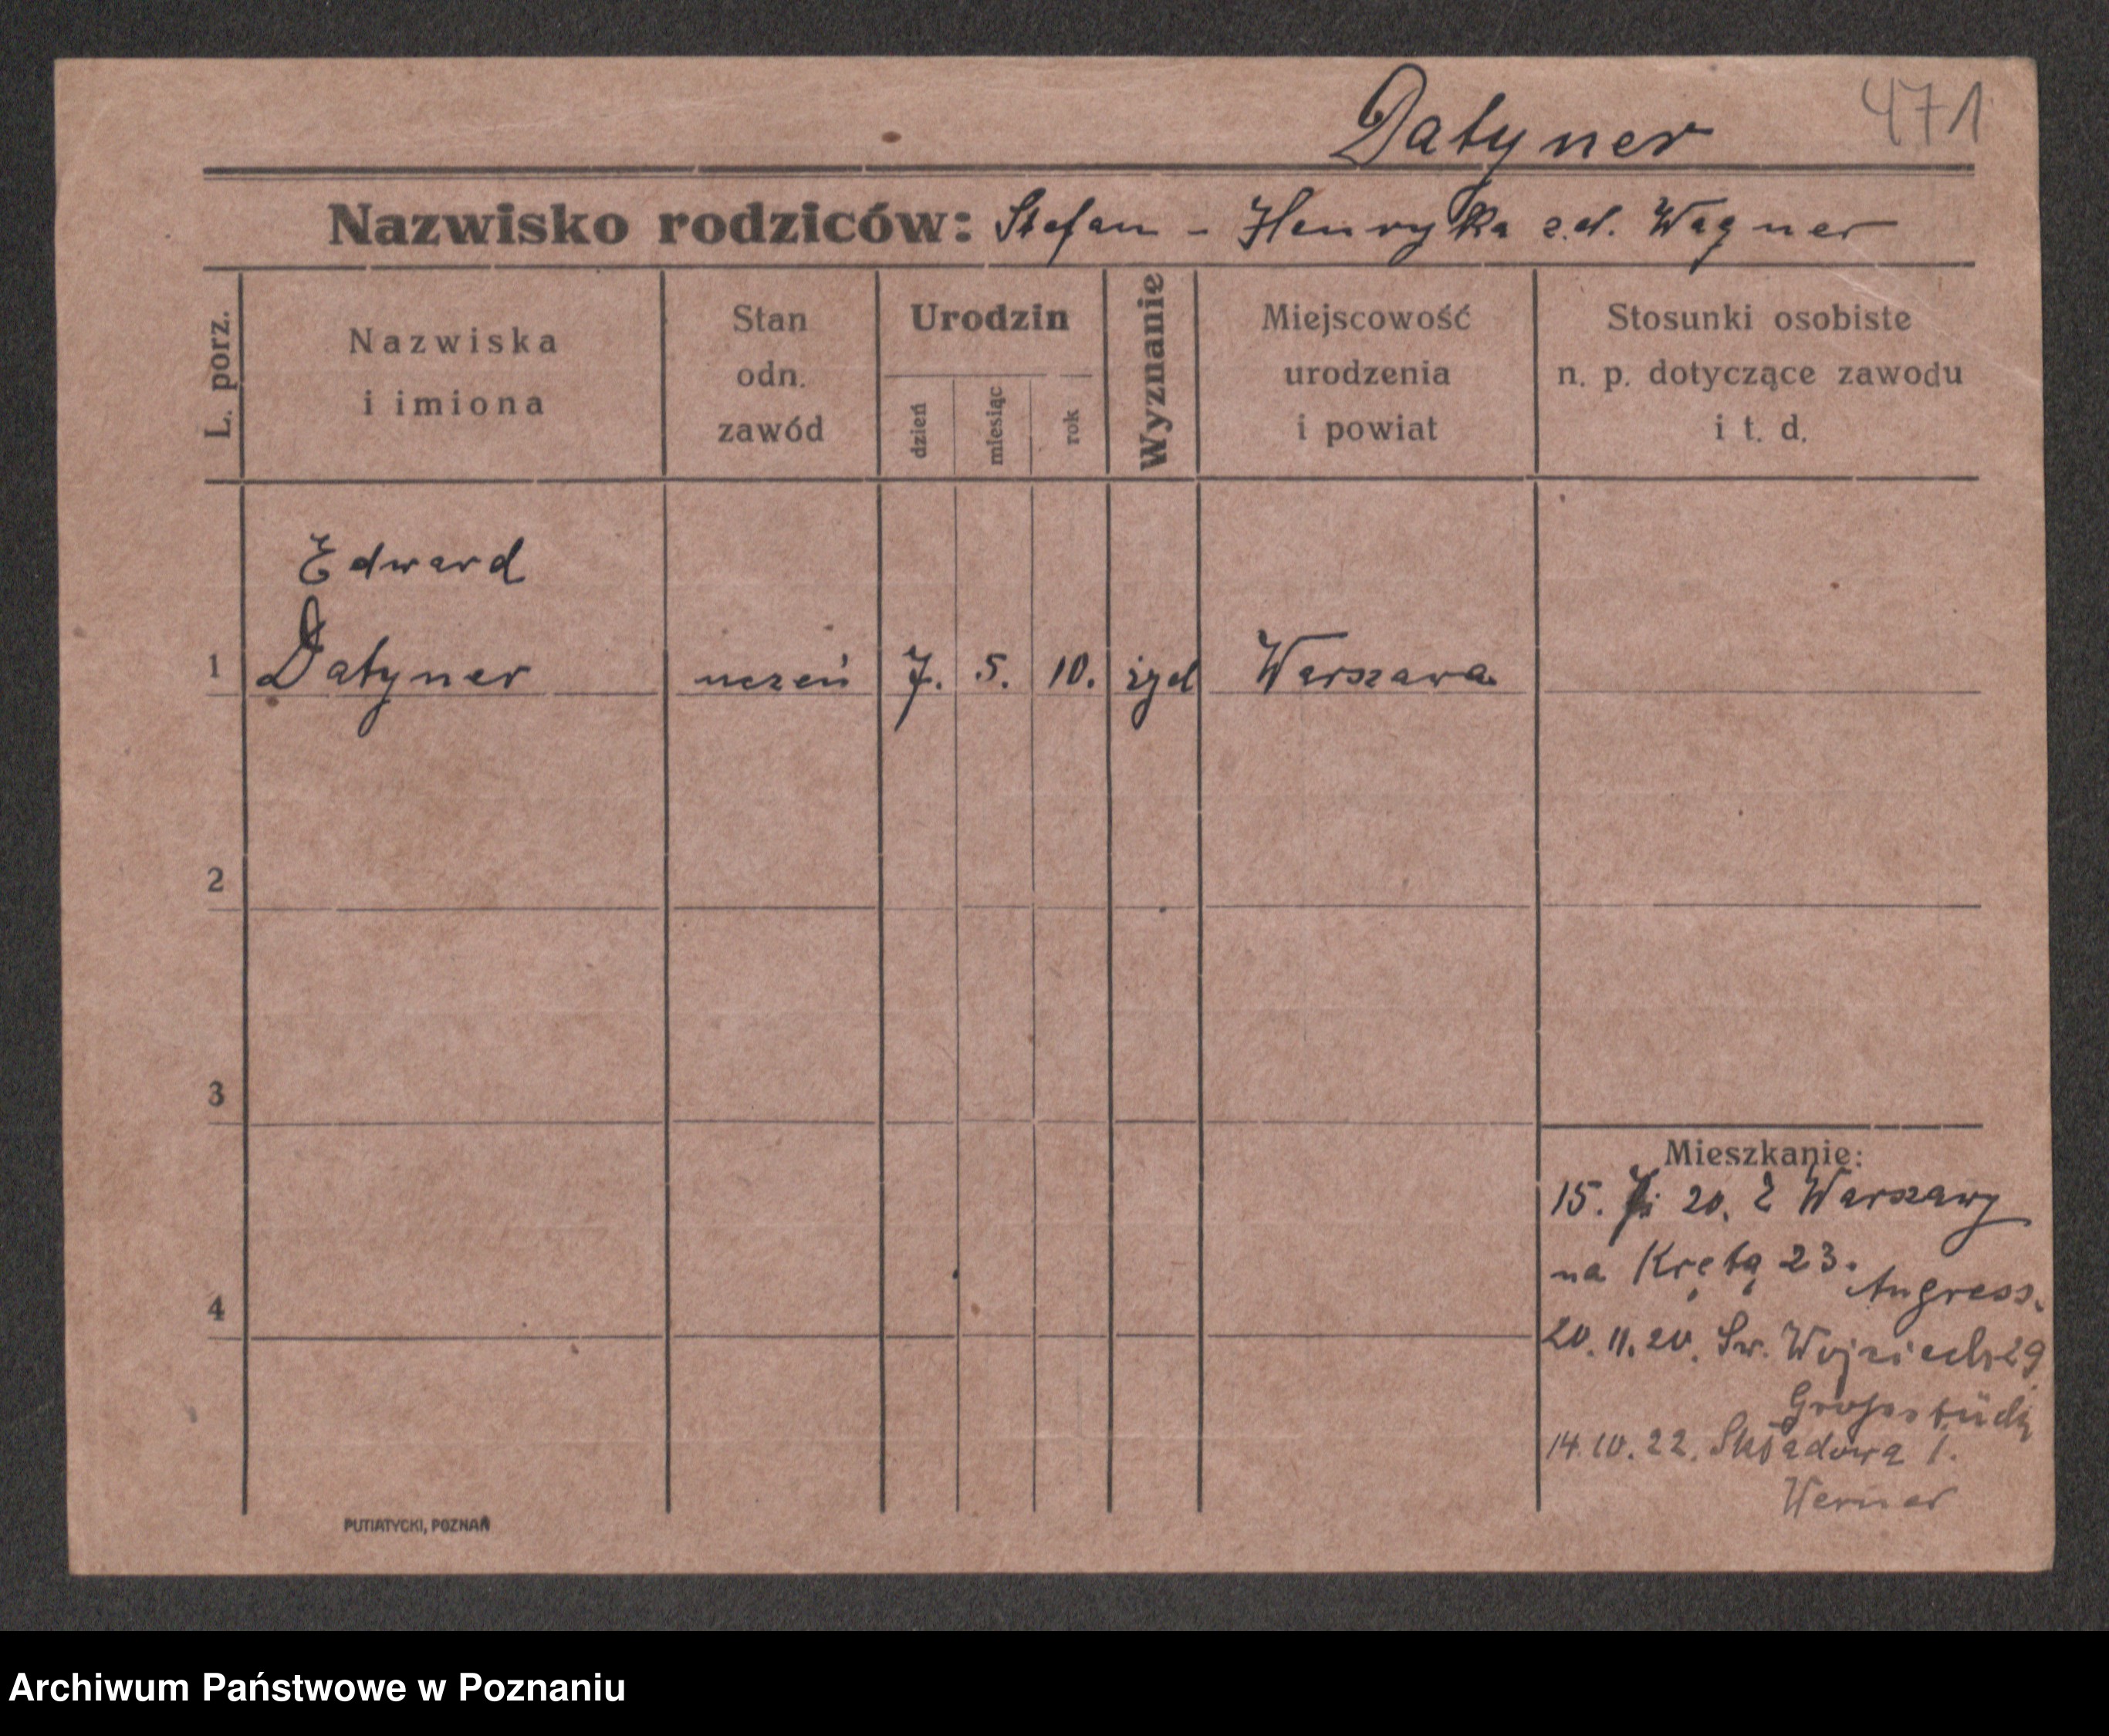 Datyner 471
Nazwisko rodziców: Stefan - Henryka z.d. Wagner
L. porz.
Nazwiska
i imiona
Stan
odn.
zawód
Urodzin
dzień
miesiąc
rok
Wyznanie
Miejscowość
urodzenia
i powiat
Stosunki osobiste
n. p. dotyczące zawodu
i t. d.
Edward
1 Datyner uczeń 7. 5. 10. żyd Warszawa
2
3
4
Mieszkanie:
15. 20. z Warszawy
na Krętą 23.
Angress.
20.11.20. Św. Wojciech 29
14.10.22. Składowa 1.
Werner
PUTIATYCKI, POZNAŃ
Archiwum Państwowe w Poznaniu